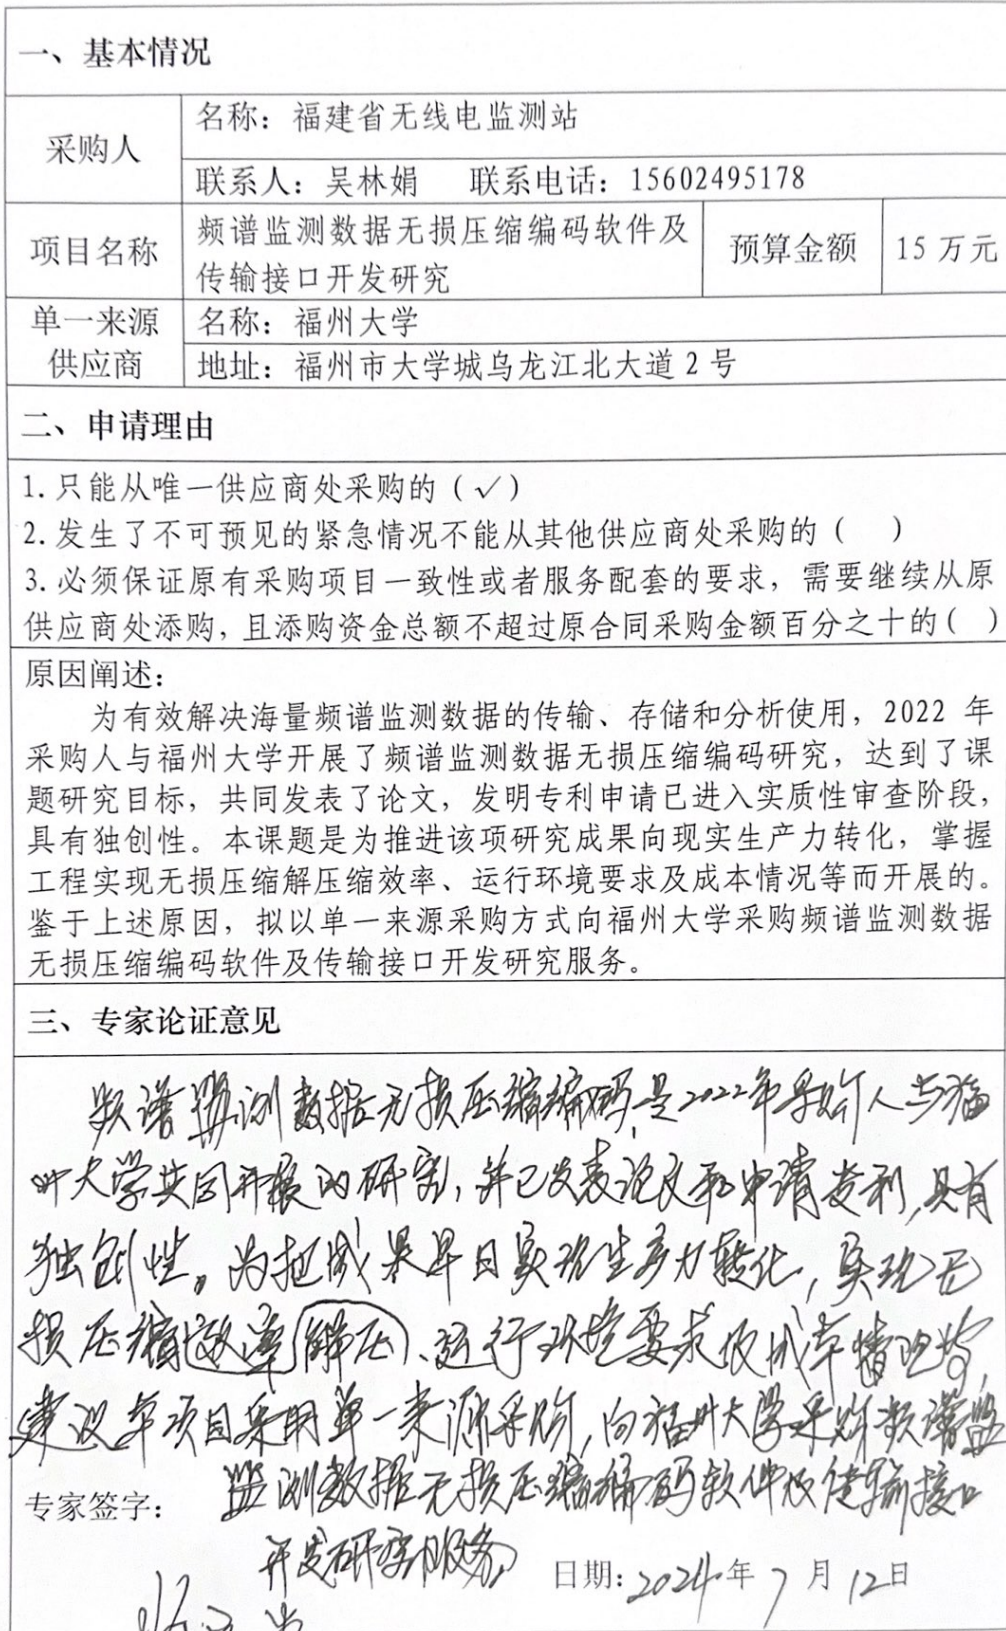 一、基本情况
采购人
名称：福建省无线电监测站
联系人：吴林娟 联系电话：15602495178
项目名称
频谱监测数据无损压缩编码软件及
传输接口开发研究
预算金额
15 万元
单一来源
供应商
名称：福州大学
地址：福州市大学城乌龙江北大道 2 号
二、申请理由
1.只能从唯一供应商处采购的（✓）
2.发生了不可预见的紧急情况不能从其他供应商处采购的（ ）
3.必须保证原有采购项目一致性或者服务配套的要求，需要继续从原
供应商处添购，且添购资金总额不超过原合同采购金额百分之十的（ ）
原因阐述：
为有效解决海量频谱监测数据的传输、存储和分析使用，2022 年
采购人与福州大学开展了频谱监测数据无损压缩编码研究，达到了课
题研究目标，共同发表了论文，发明专利申请已进入实质性审查阶段，
具有独创性。本课题是为推进该项研究成果向现实生产力转化，掌握
工程实现无损压缩解压缩效率、运行环境要求及成本情况等而开展的。
鉴于上述原因，拟以单一来源采购方式向福州大学采购频谱监测数据
无损压缩编码软件及传输接口开发研究服务。
三、专家论证意见
频谱监测数据无损压缩编码，是2022年采购人与福
州大学共同开展的研究，并已发表论文和申请专利，具有
独创性。为把成果早日实现生产力转化，实现无
损压缩效率(解压)、运行环境要求及成本情况等，
建议本项目采用单一来源采购，向福州大学采购频谱监
监测数据无损压缩编码软件及传输接口
开发研究服务
专家签字：
日期：2024年 7 月 12日